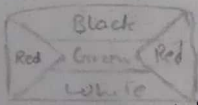 Black
Red Green Red
White